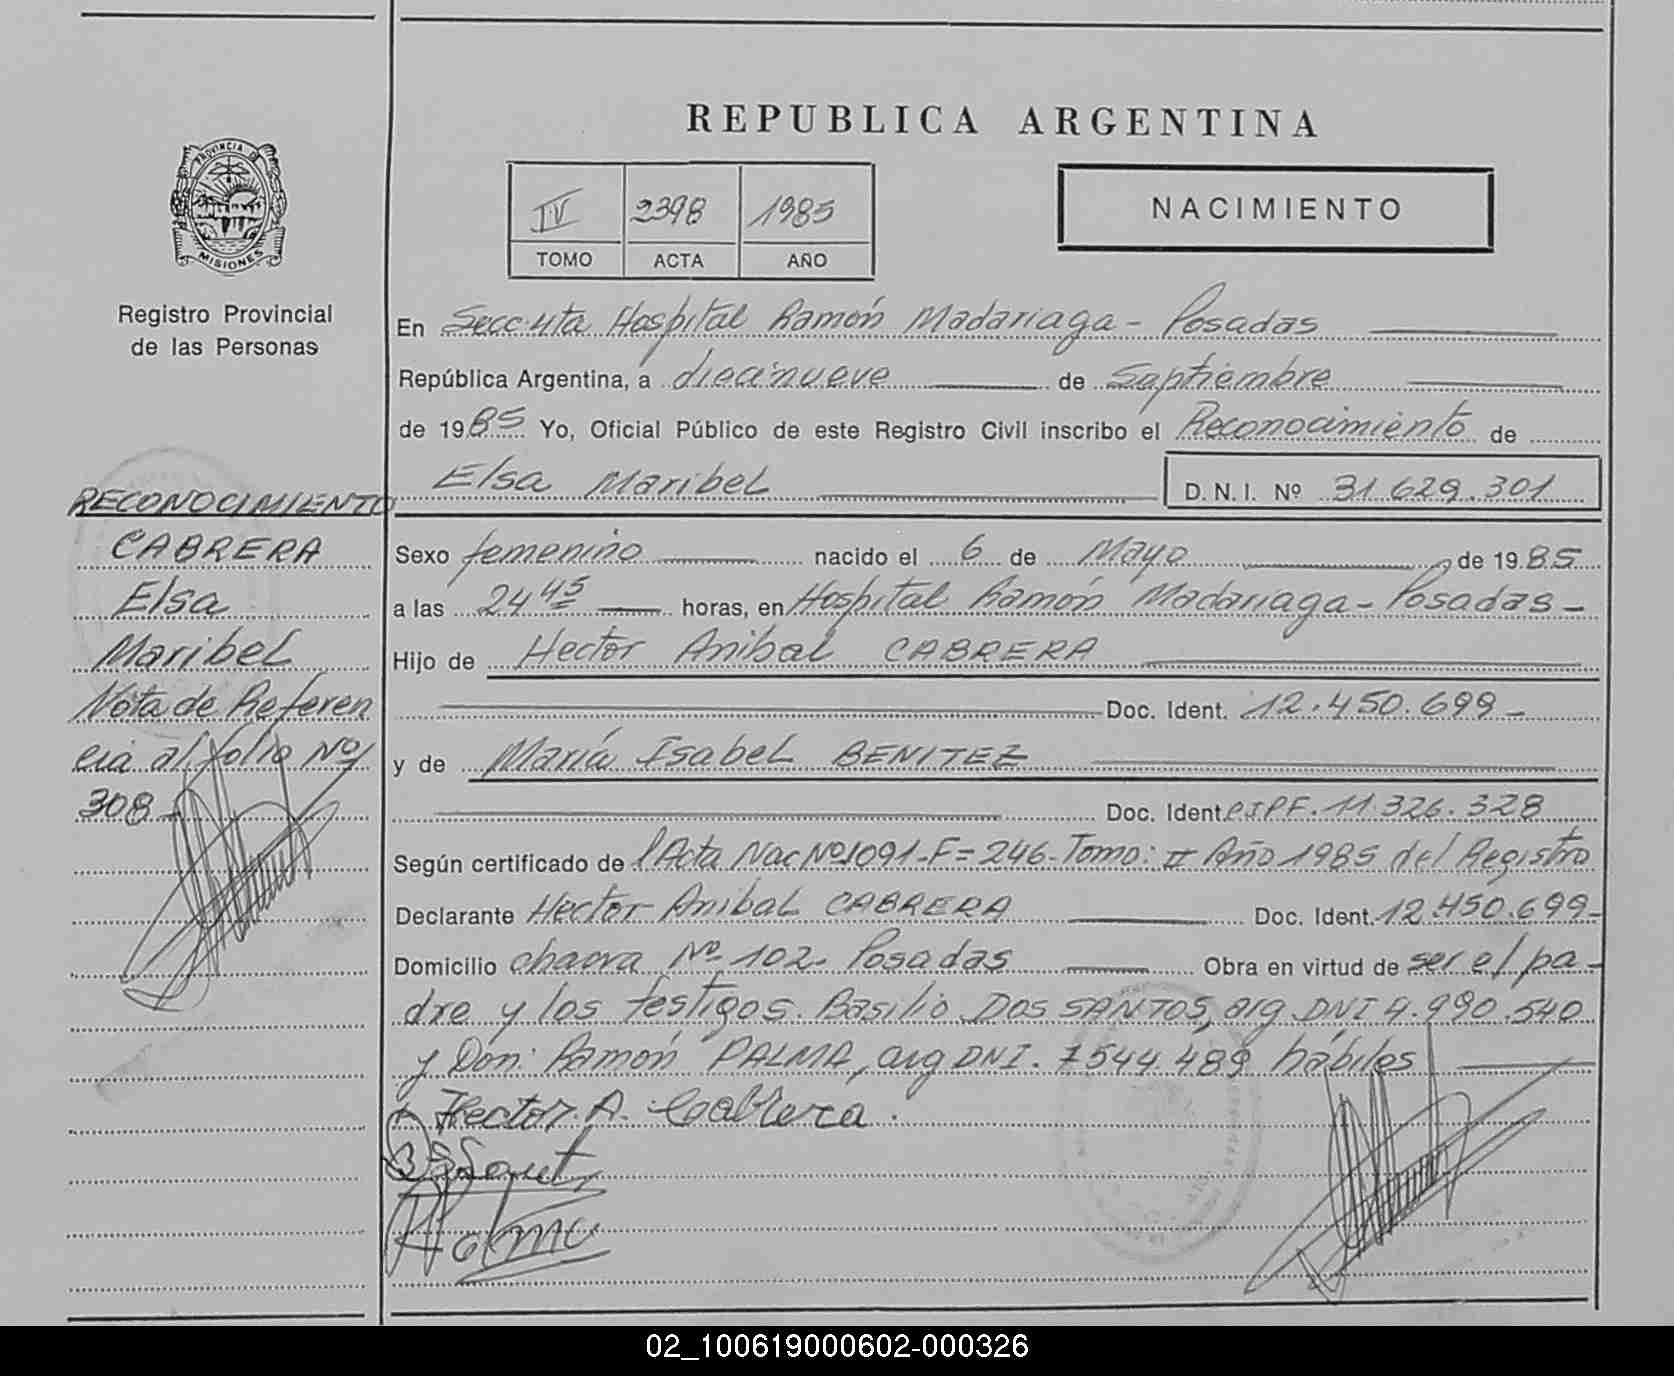 REPUBLICA ARGENTINA
PROVINCIA DE
MISIONES
IV 2398 1985
TOMO ACTA AÑO
NACIMIENTO
Registro Provincial
de las Personas
En Secc uta Hospital Ramón Madariaga - Posadas
República Argentina, a diecinueve de Septiembre
de 1985 Yo, Oficial Público de este Registro Civil inscribo el Reconocimiento de
Elsa Maribel D.N.I. Nº 31.629.301
Sexo femenino nacido el 6 de Mayo de 1985
a las 24 45 horas, en Hospital Ramón Madariaga - Posadas -
Hijo de Hector Anibal CABRERA
Doc. Ident. 12.450.699 -
y de María Isabel BENITEZ
Doc. Ident. CIPF. 11.326.328
Según certificado de l Acta Nac Nº 1091 - F = 246 - Tomo: II Año 1985 del Registro
Declarante Hector Anibal CABRERA Doc. Ident. 12.450.699 -
Domicilio chacra Nº 102 - Posadas Obra en virtud de ser el pa-
dre y los testigos. Basilio DOS SANTOS, arg DNI 4.990.540
y Don: Ramón PALMA, arg DNI. 7544.489 hábiles
Hector A. Cabrera.
RECONOCIMIENTO
CABRERA
Elsa
Maribel
Nota de Referen
cia al folio Nº
308 -
02_100619000602-000326